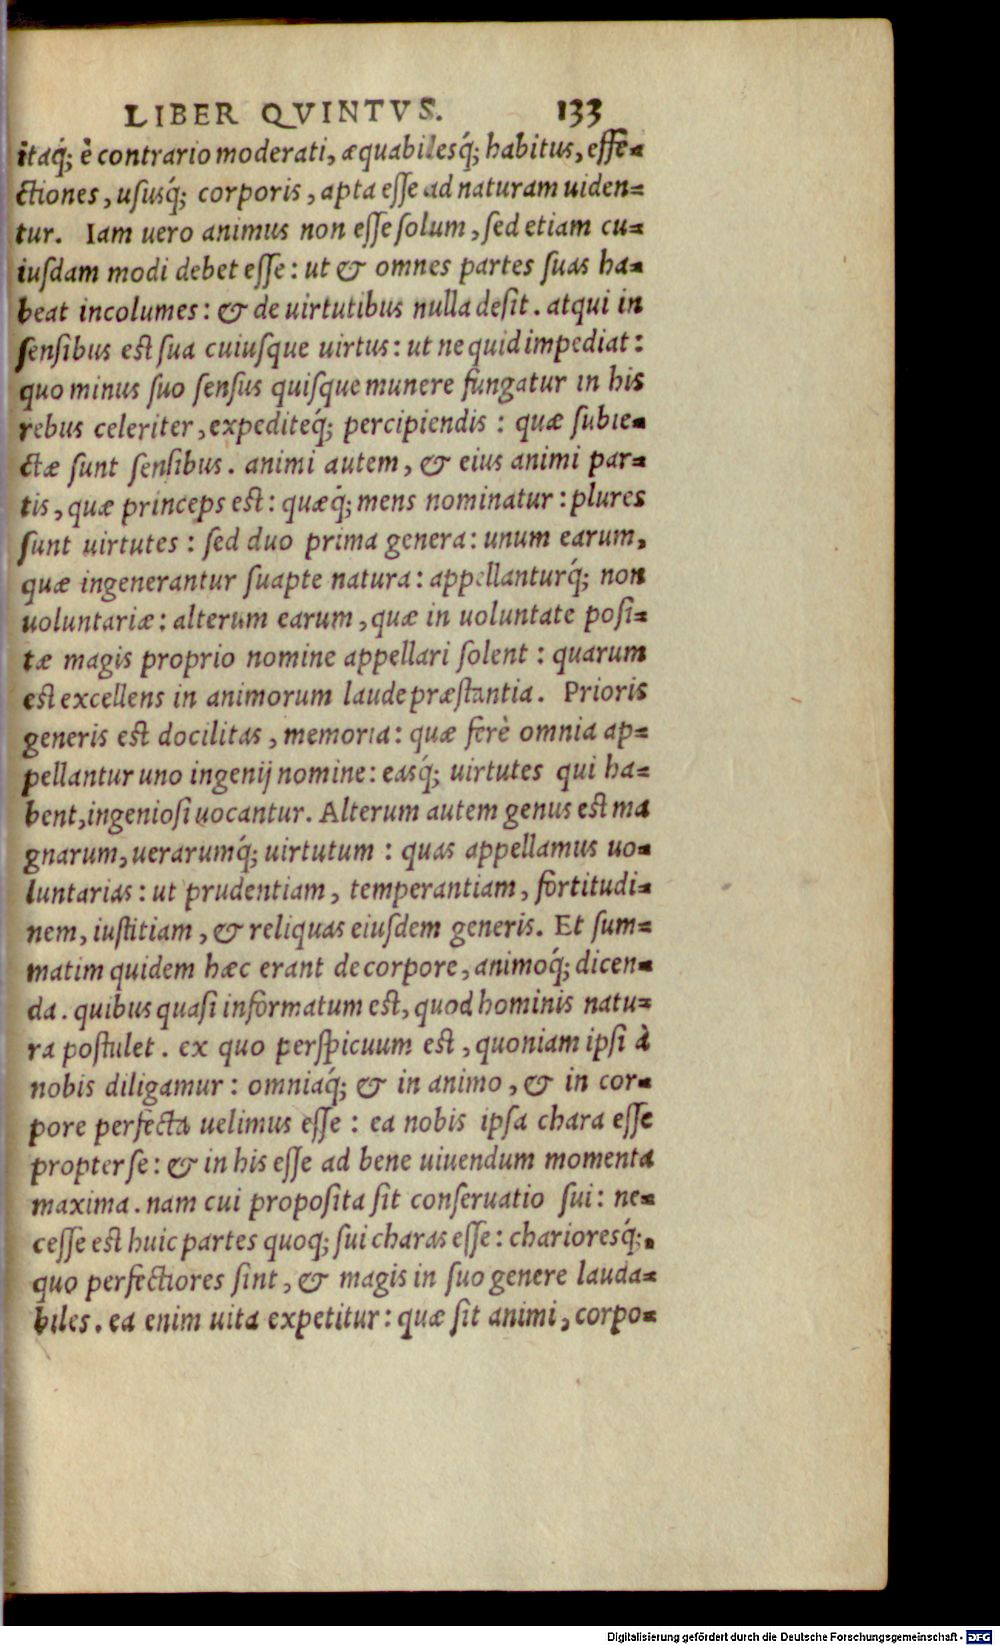 LIBER QVINTVS. 133
itaq́; è contrario moderati, æquabilesq́; habitus, effe=
ctiones, uſusq́; corporis, apta eſſe ad naturam uiden=
tur. Iam uero animus non eſſe ſolum, ſed etiam cu=
iuſdam modi debet eſſe: ut & omnes partes ſuas ha=
beat incolumes: & de uirtutibus nulla deſit. atqui in
ſenſibus est ſua cuiuſque uirtus: ut ne quid impediat:
quo minus ſuo ſenſus quiſque munere fungatur in his
rebus celeriter, expediteq́; percipiendis: quæ ſubie=
ctæ ſunt ſenſibus. animi autem, & eius animi par=
tis, quæ princeps est: quæq́; mens nominatur: plures
ſunt uirtutes: ſed duo prima genera: unum earum,
quæ ingenerantur ſuapte natura: appellanturq́; non
uoluntariæ: alterum earum, quæ in uoluntate poſi=
tæ magis proprio nomine appellari ſolent: quarum
est excellens in animorum laude præstantia. Prioris
generis est docilitas, memoria: quæ ferè omnia ap=
pellantur uno ingenij nomine: easq́; uirtutes qui ha=
bent, ingenioſi uocantur. Alterum autem genus est ma
gnarum, uerarumq́; uirtutum: quas appellamus uo=
luntarias: ut prudentiam, temperantiam, fortitudi=
nem, iustitiam, & reliquas eiuſdem generis. Et ſum=
matim quidem hæc erant de corpore, animoq́; dicen=
da. quibus quaſi informatum est, quod hominis natu=
ra postulet. ex quo perſpicuum est, quoniam ipſi à
nobis diligamur: omniaq́; & in animo, & in cor=
pore perfecta uelimus eſſe: ea nobis ipſa chara eſſe
propter ſe: & in his eſſe ad bene uiuendum momenta
maxima. nam cui propoſita ſit conſeruatio ſui: ne=
ceſſe est huic partes quoq; ſui charas eſſe: charioresq́;,
quo perfectiores ſint, & magis in ſuo genere lauda=
biles. ea enim uita expetitur: quæ ſit animi, corpo=
Digitalisierung gefördert durch die Deutsche Forschungsgemeinschaft - DFG